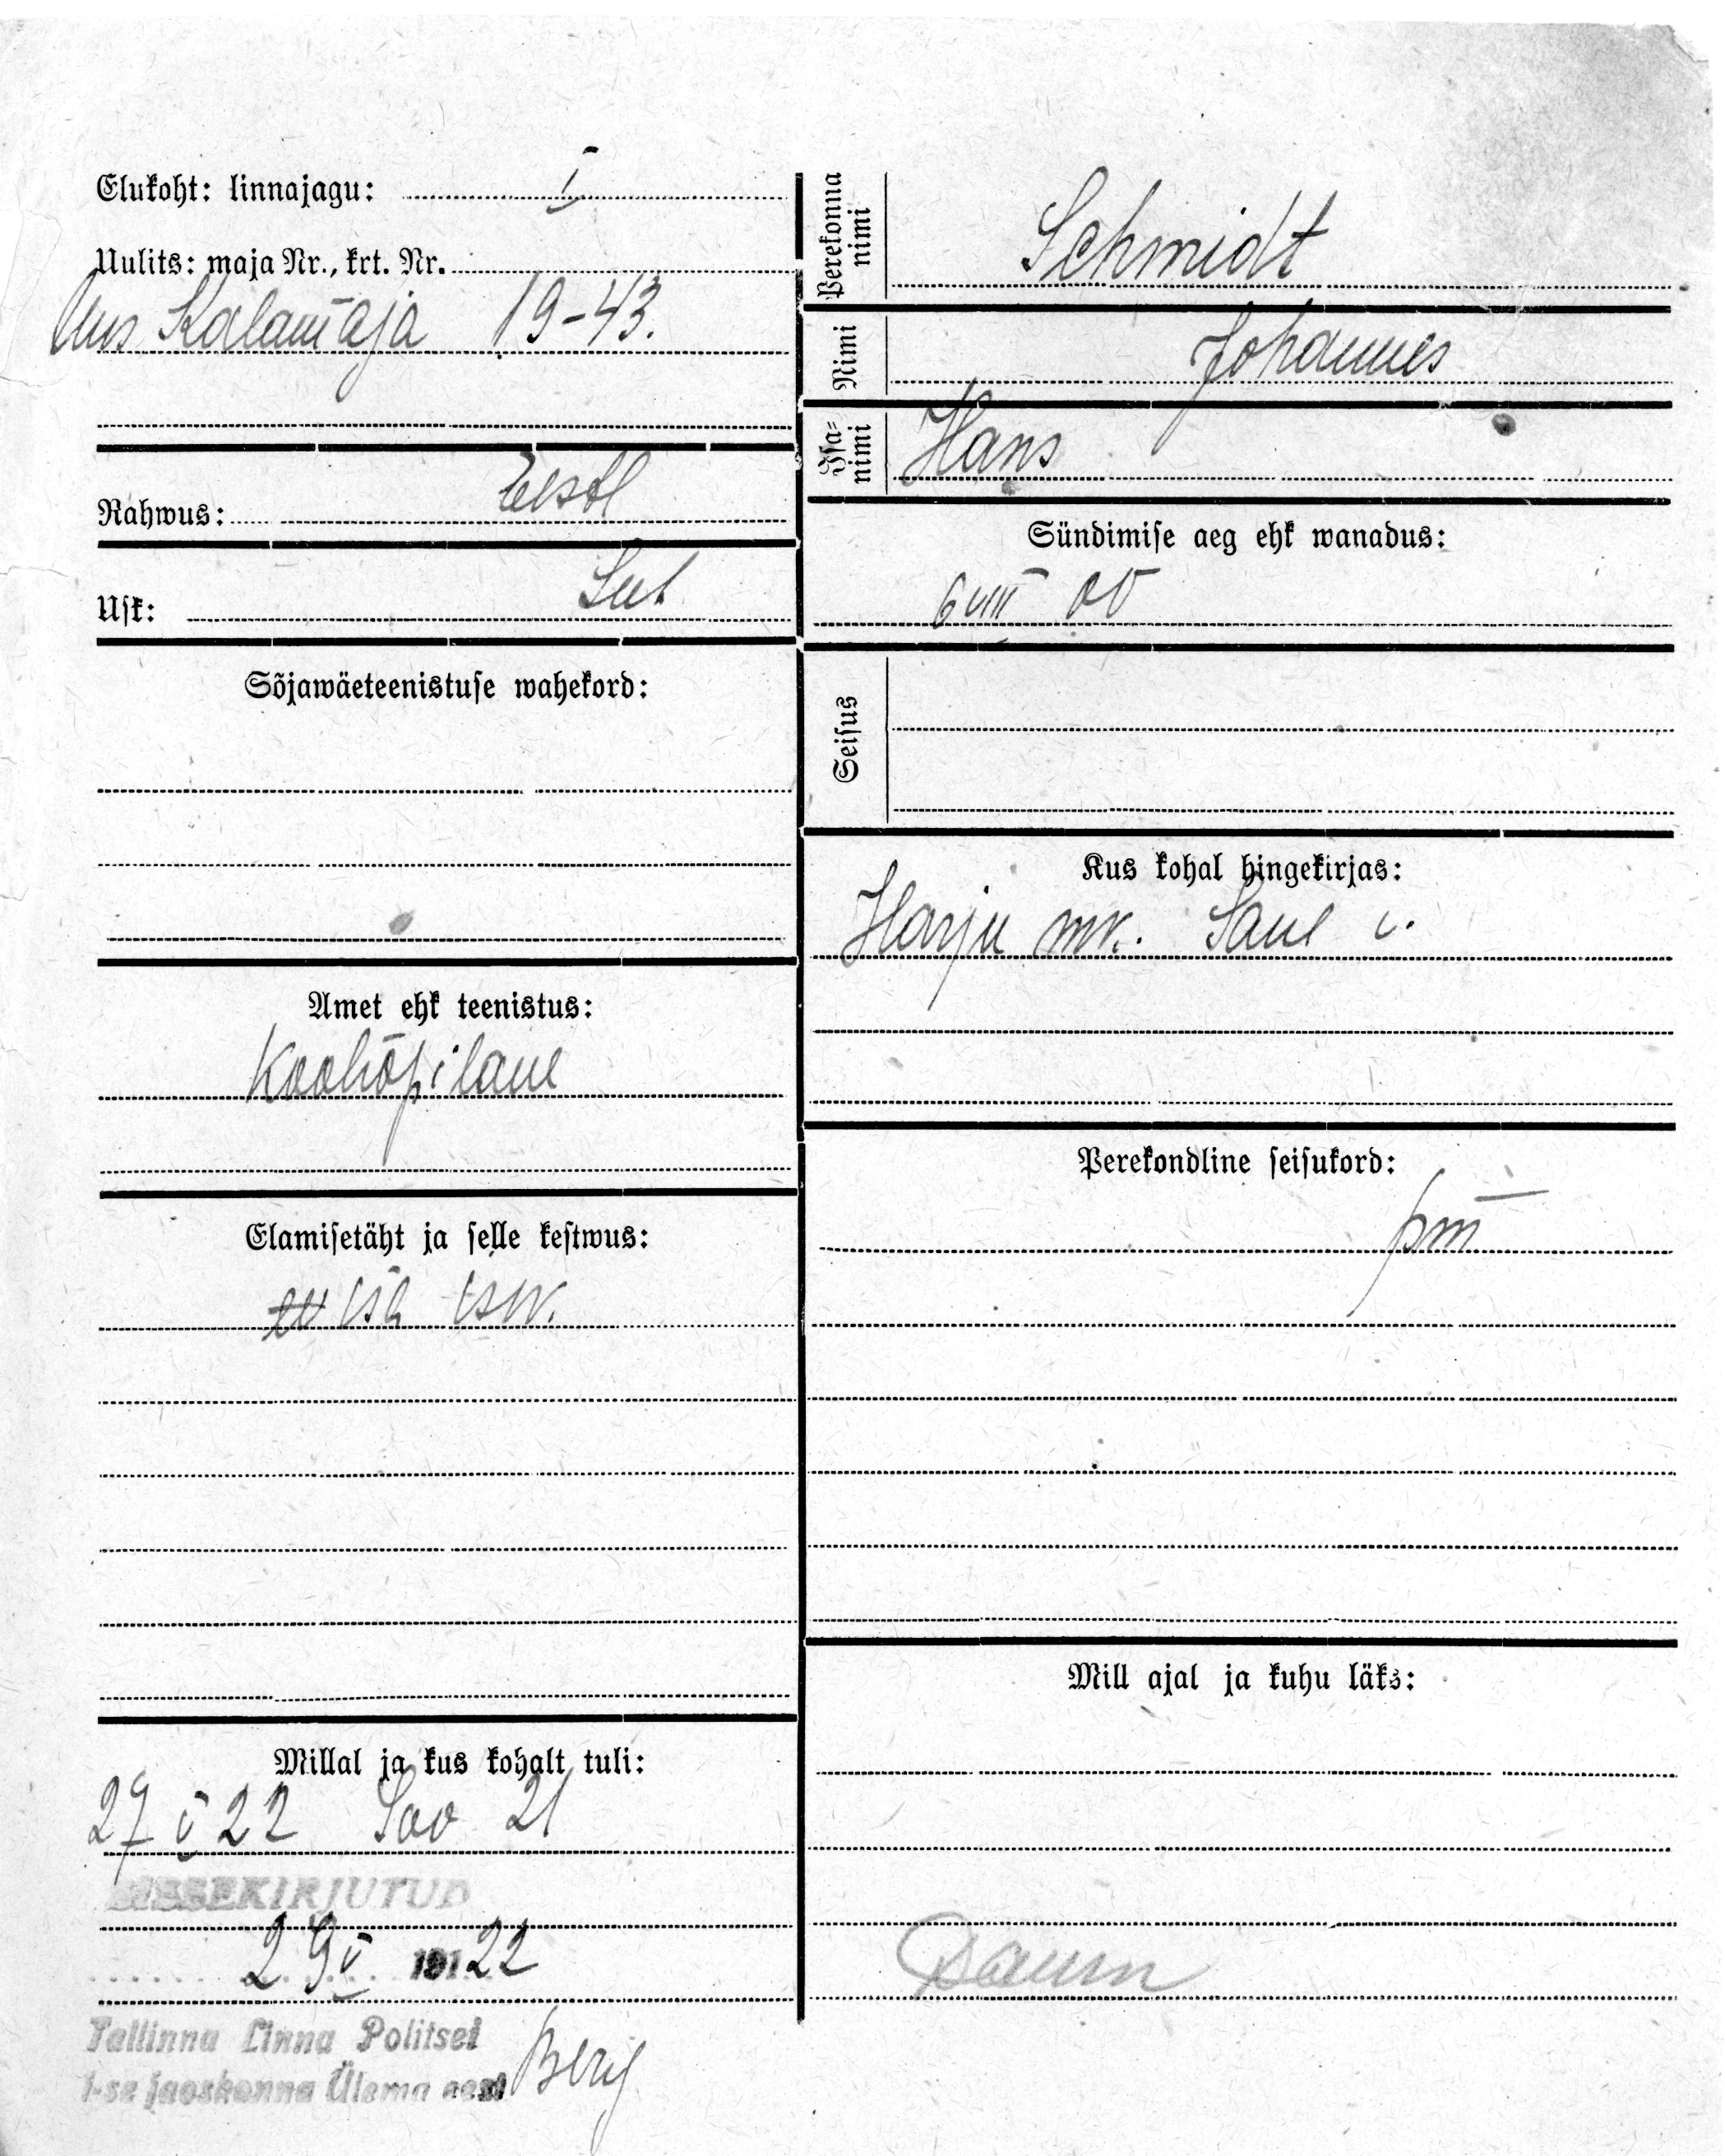 Elukoht: linnajagu: I
Uulits: maja Nr., krt. Nr.
Uus Kalamaja 19-43.
Rahwus: Eestl
Usk: Lut
Sõjawäeteenistuse wahekord:
Amet ehk teenistus:
Koolõpilane
Elamisetäht ja selle kestwus:
isik isw.
Millal ja kus kohalt tuli:
27 V 22 Soo 21
SISSEKIRJUTUD
29 V 19122
Tallinna Linna Politsei
I-se jaoskonna Ülema eest Berg
Perekonna nimi
Schmidt
Nimi
Johannes
Isa-nimi
Hans
Sündimise aeg ehk wanadus:
6 VIII 05
Seisus
Kus kohal hingekirjas:
Harju mk. Saue v.
Perekondline seisukord:
pm
Mill ajal ja kuhu läks: